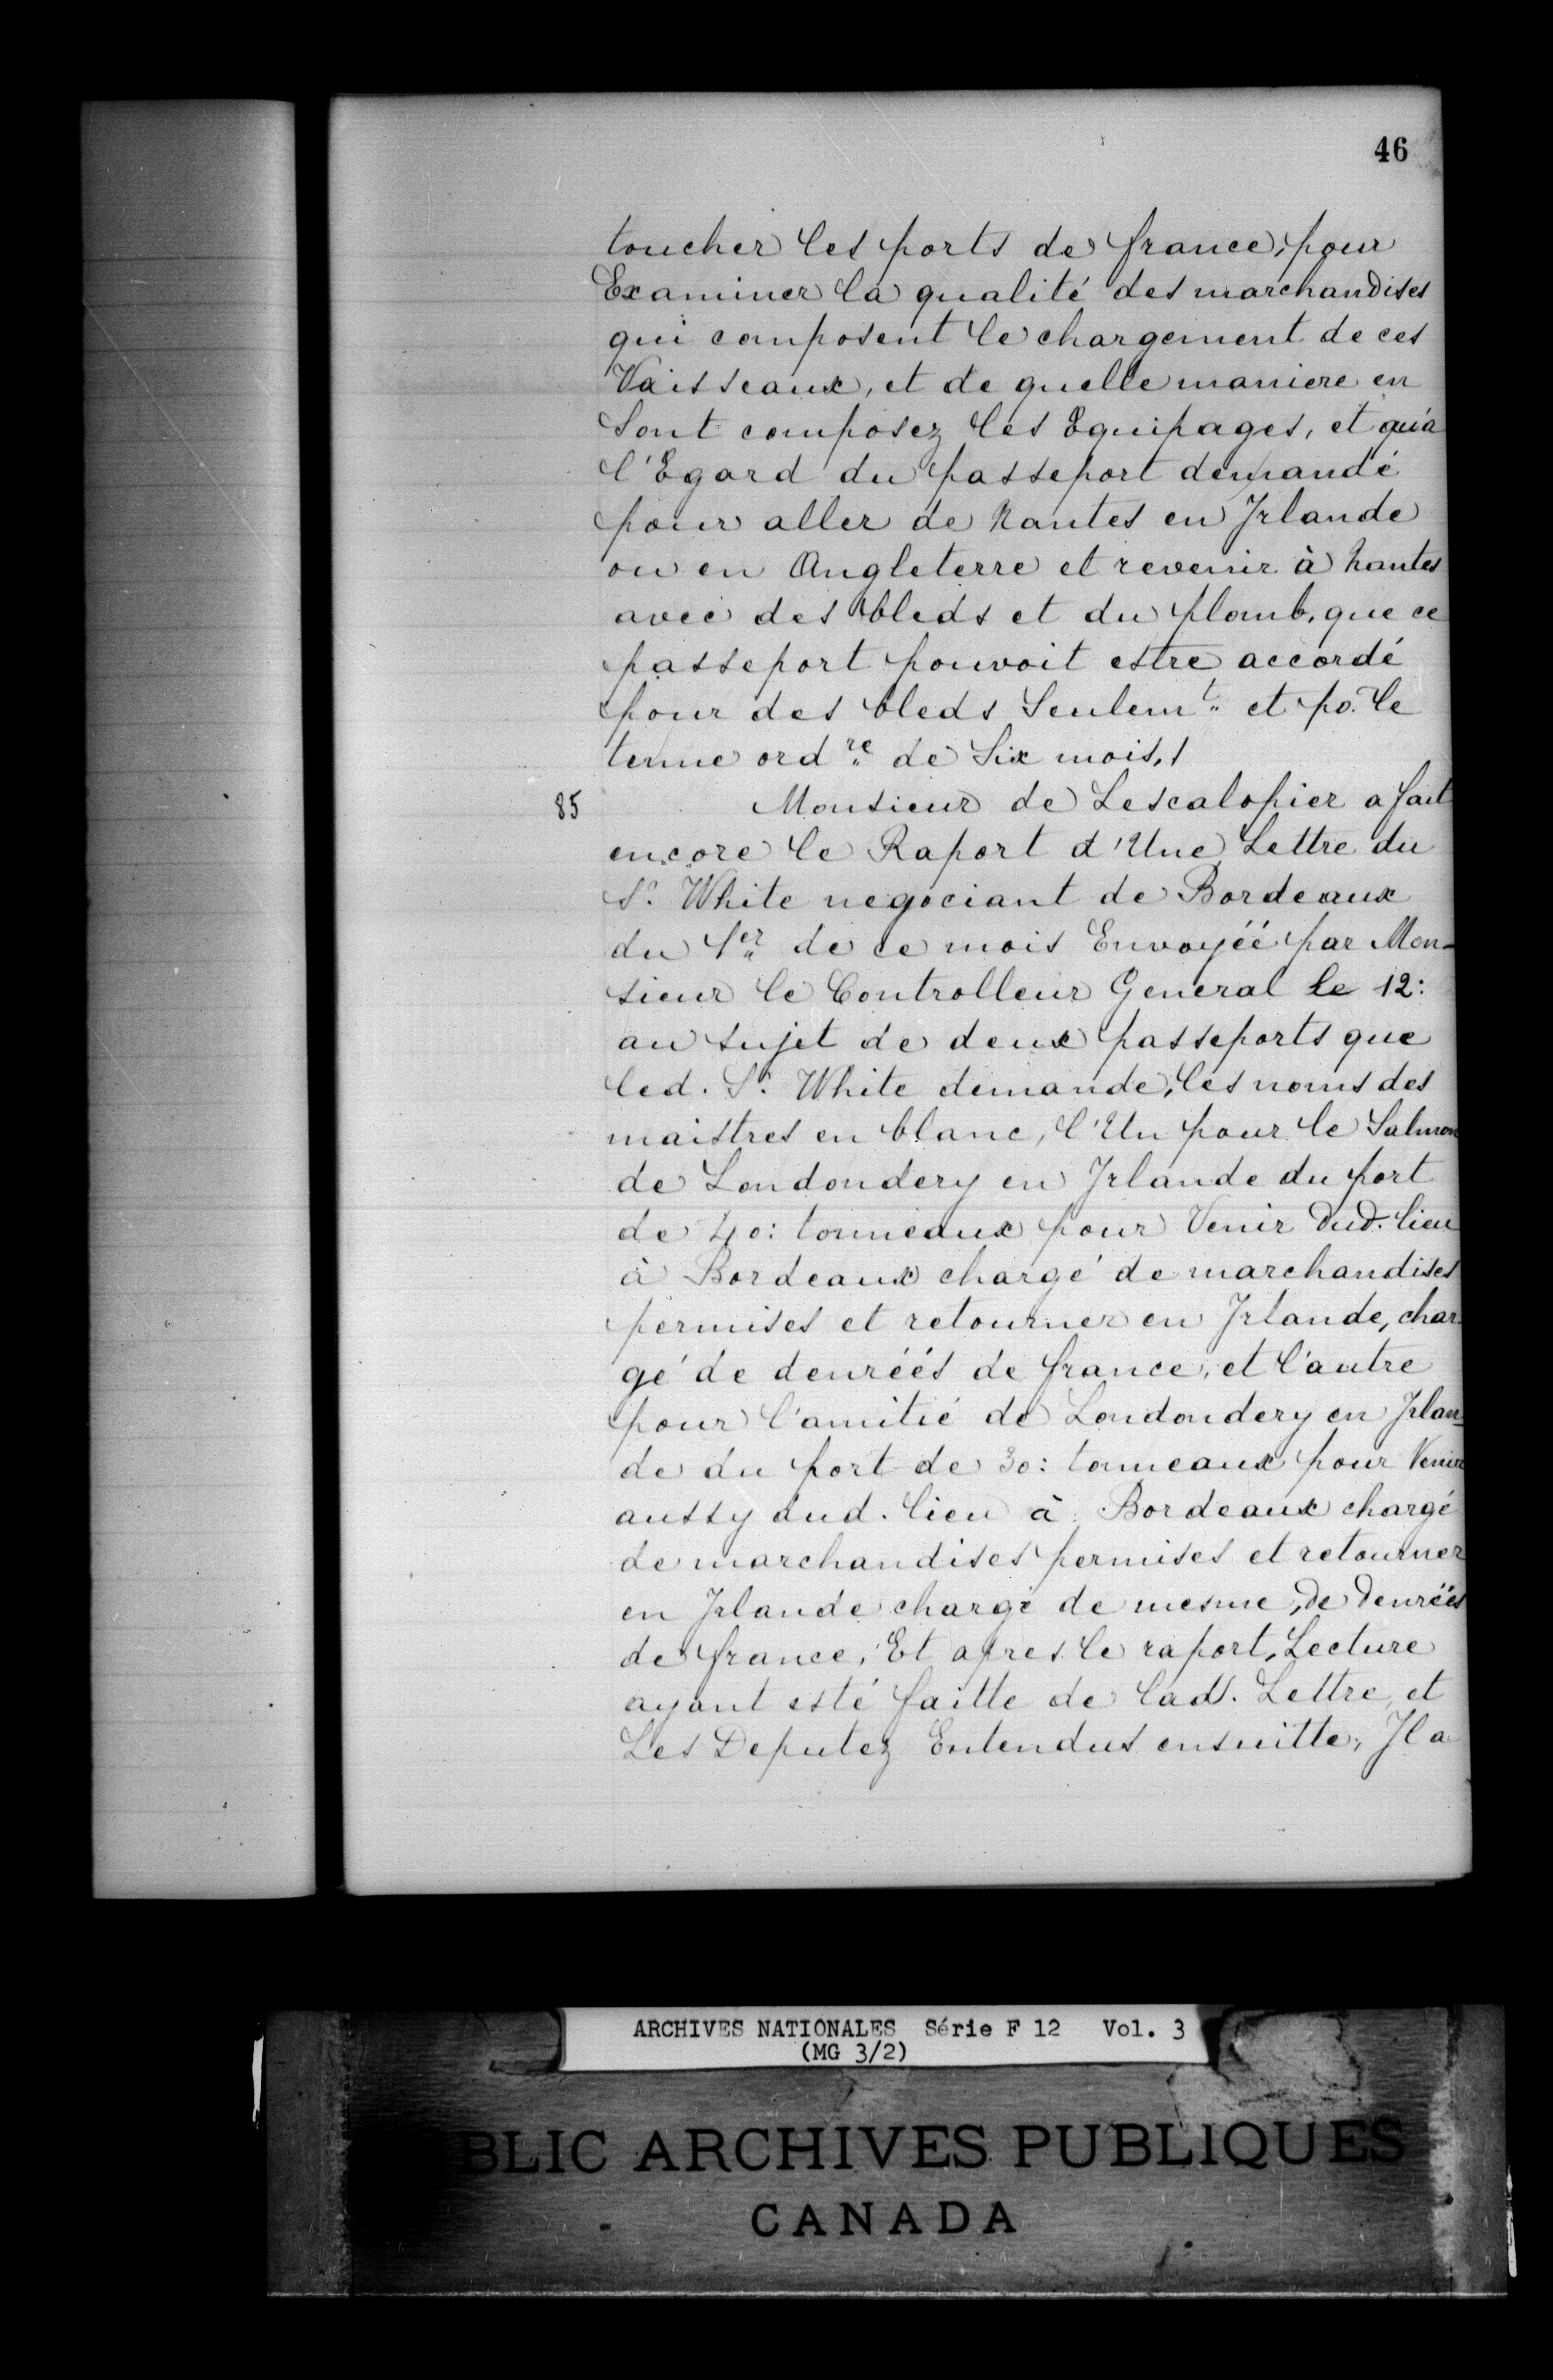 46
toucher les ports de france, pour
Examiner la qualité des marchandises
qui composent le chargement de ces
Vaisseaux, et de quelle maniere en
sont composez les Equipages, et qu'à
l'Egard du passeport demandé
pour aller de Nantes en Jrlande
ou en Angleterre et revenir à Nantes
avec des bleds et du plomb, que ce
passeport pouvoit estre accordé
pour des bleds Seulemt. et po. le
terme ordre de Six mois./
85 Monsieur de Lescalopier a fait
encore le Raport d'Une Lettre du
Sr. White negociant de Bordeaux
du 1er de ce mois Envoyéé par Mon-
sieur le Controlleur General le 12:
au sujet de deux passeports que
led. Sr. White demande, les noms des
maistres en blanc, l'Un pour le Salmon
de Londondery en Jrlande du port
de 40: tonneaux pour Venir dud. lieu
à Bordeaux chargé de marchandises
permises et retourner en Jrlande, char-
gé de denréés de france, et l'autre
pour l'amitié de Londondery en Jrlan-
de du port de 30: tonneaux pour Venir
aussy dud. lieu à Bordeaux chargé
de marchandises permises et retourner
en Jrlande chargé de mesme, de denréés
de france, Et apres le raport, Lecture
ayant esté faitte de lad. Lettre, et
Les Deputez Entendus ensuitte, Jl a
ARCHIVES NATIONALES Série F 12 Vol. 3
(MG 3/2)
BLIC ARCHIVES PUBLIQUES
CANADA